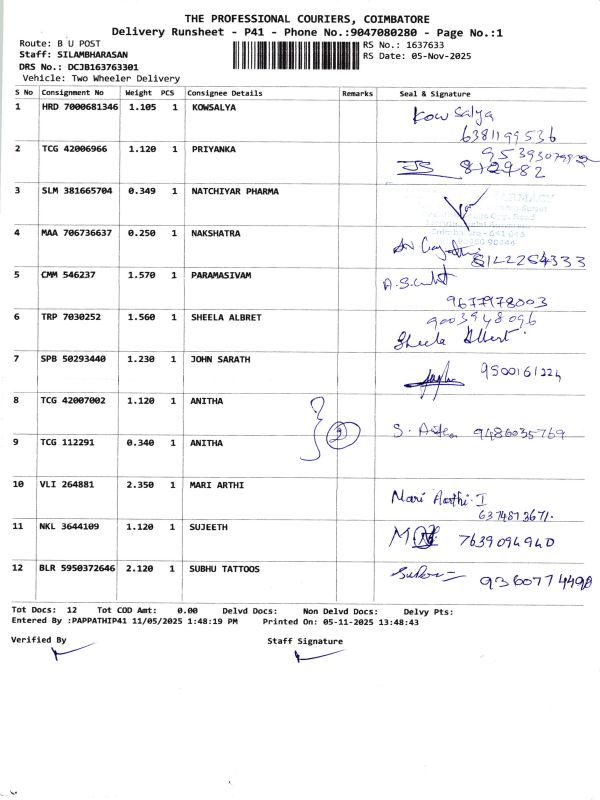 THE PROFESSIONAL COURIERS, COIMBATORE
Delivery Runsheet - P41 - Phone No.:9047080280 - Page No.:1
Route: B U POST
RS No.: 1637633
Staff: SILAMBHARASAN
RS Date: 05-Nov-2025
DRS No.: DCJB163763301
Vehicle: Two Wheeler Delivery
S No Consignment No Weight PCS Consignee Details Remarks Seal & Signature
1 HRD 7000681346 1.105 1 KOWSALYA Kow Salya
6381199536
2 TCG 42006966 1.120 1 PRIYANKA
812982
3 SLM 381665704 0.349 1 NATCHIYAR PHARMA
4 MAA 706736637 0.250 1 NAKSHATRA
8122254333
5 CMM 546237 1.570 1 PARAMASIVAM
9677978003
6 TRP 7030252 1.560 1 SHEELA ALBRET 9003948096
Sheela Albert
7 SPB 50293440 1.230 1 JOHN SARATH 9500161224
8 TCG 42007002 1.120 1 ANITHA
2 S. 9486035769
9 TCG 112291 0.340 1 ANITHA
10 VLI 264881 2.350 1 MARI ARTHI Mari Aarthi. I
6374873671.
11 NKL 3644109 1.120 1 SUJEETH 7639094940
12 BLR 5950372646 2.120 1 SUBHU TATTOOS 9360774490
Tot Docs: 12 Tot COD Amt: 0.00 Delvd Docs: Non Delvd Docs: Delvy Pts:
Entered By :PAPPATHIP41 11/05/2025 1:48:19 PM Printed On: 05-11-2025 13:48:43
Verified By Staff Signature